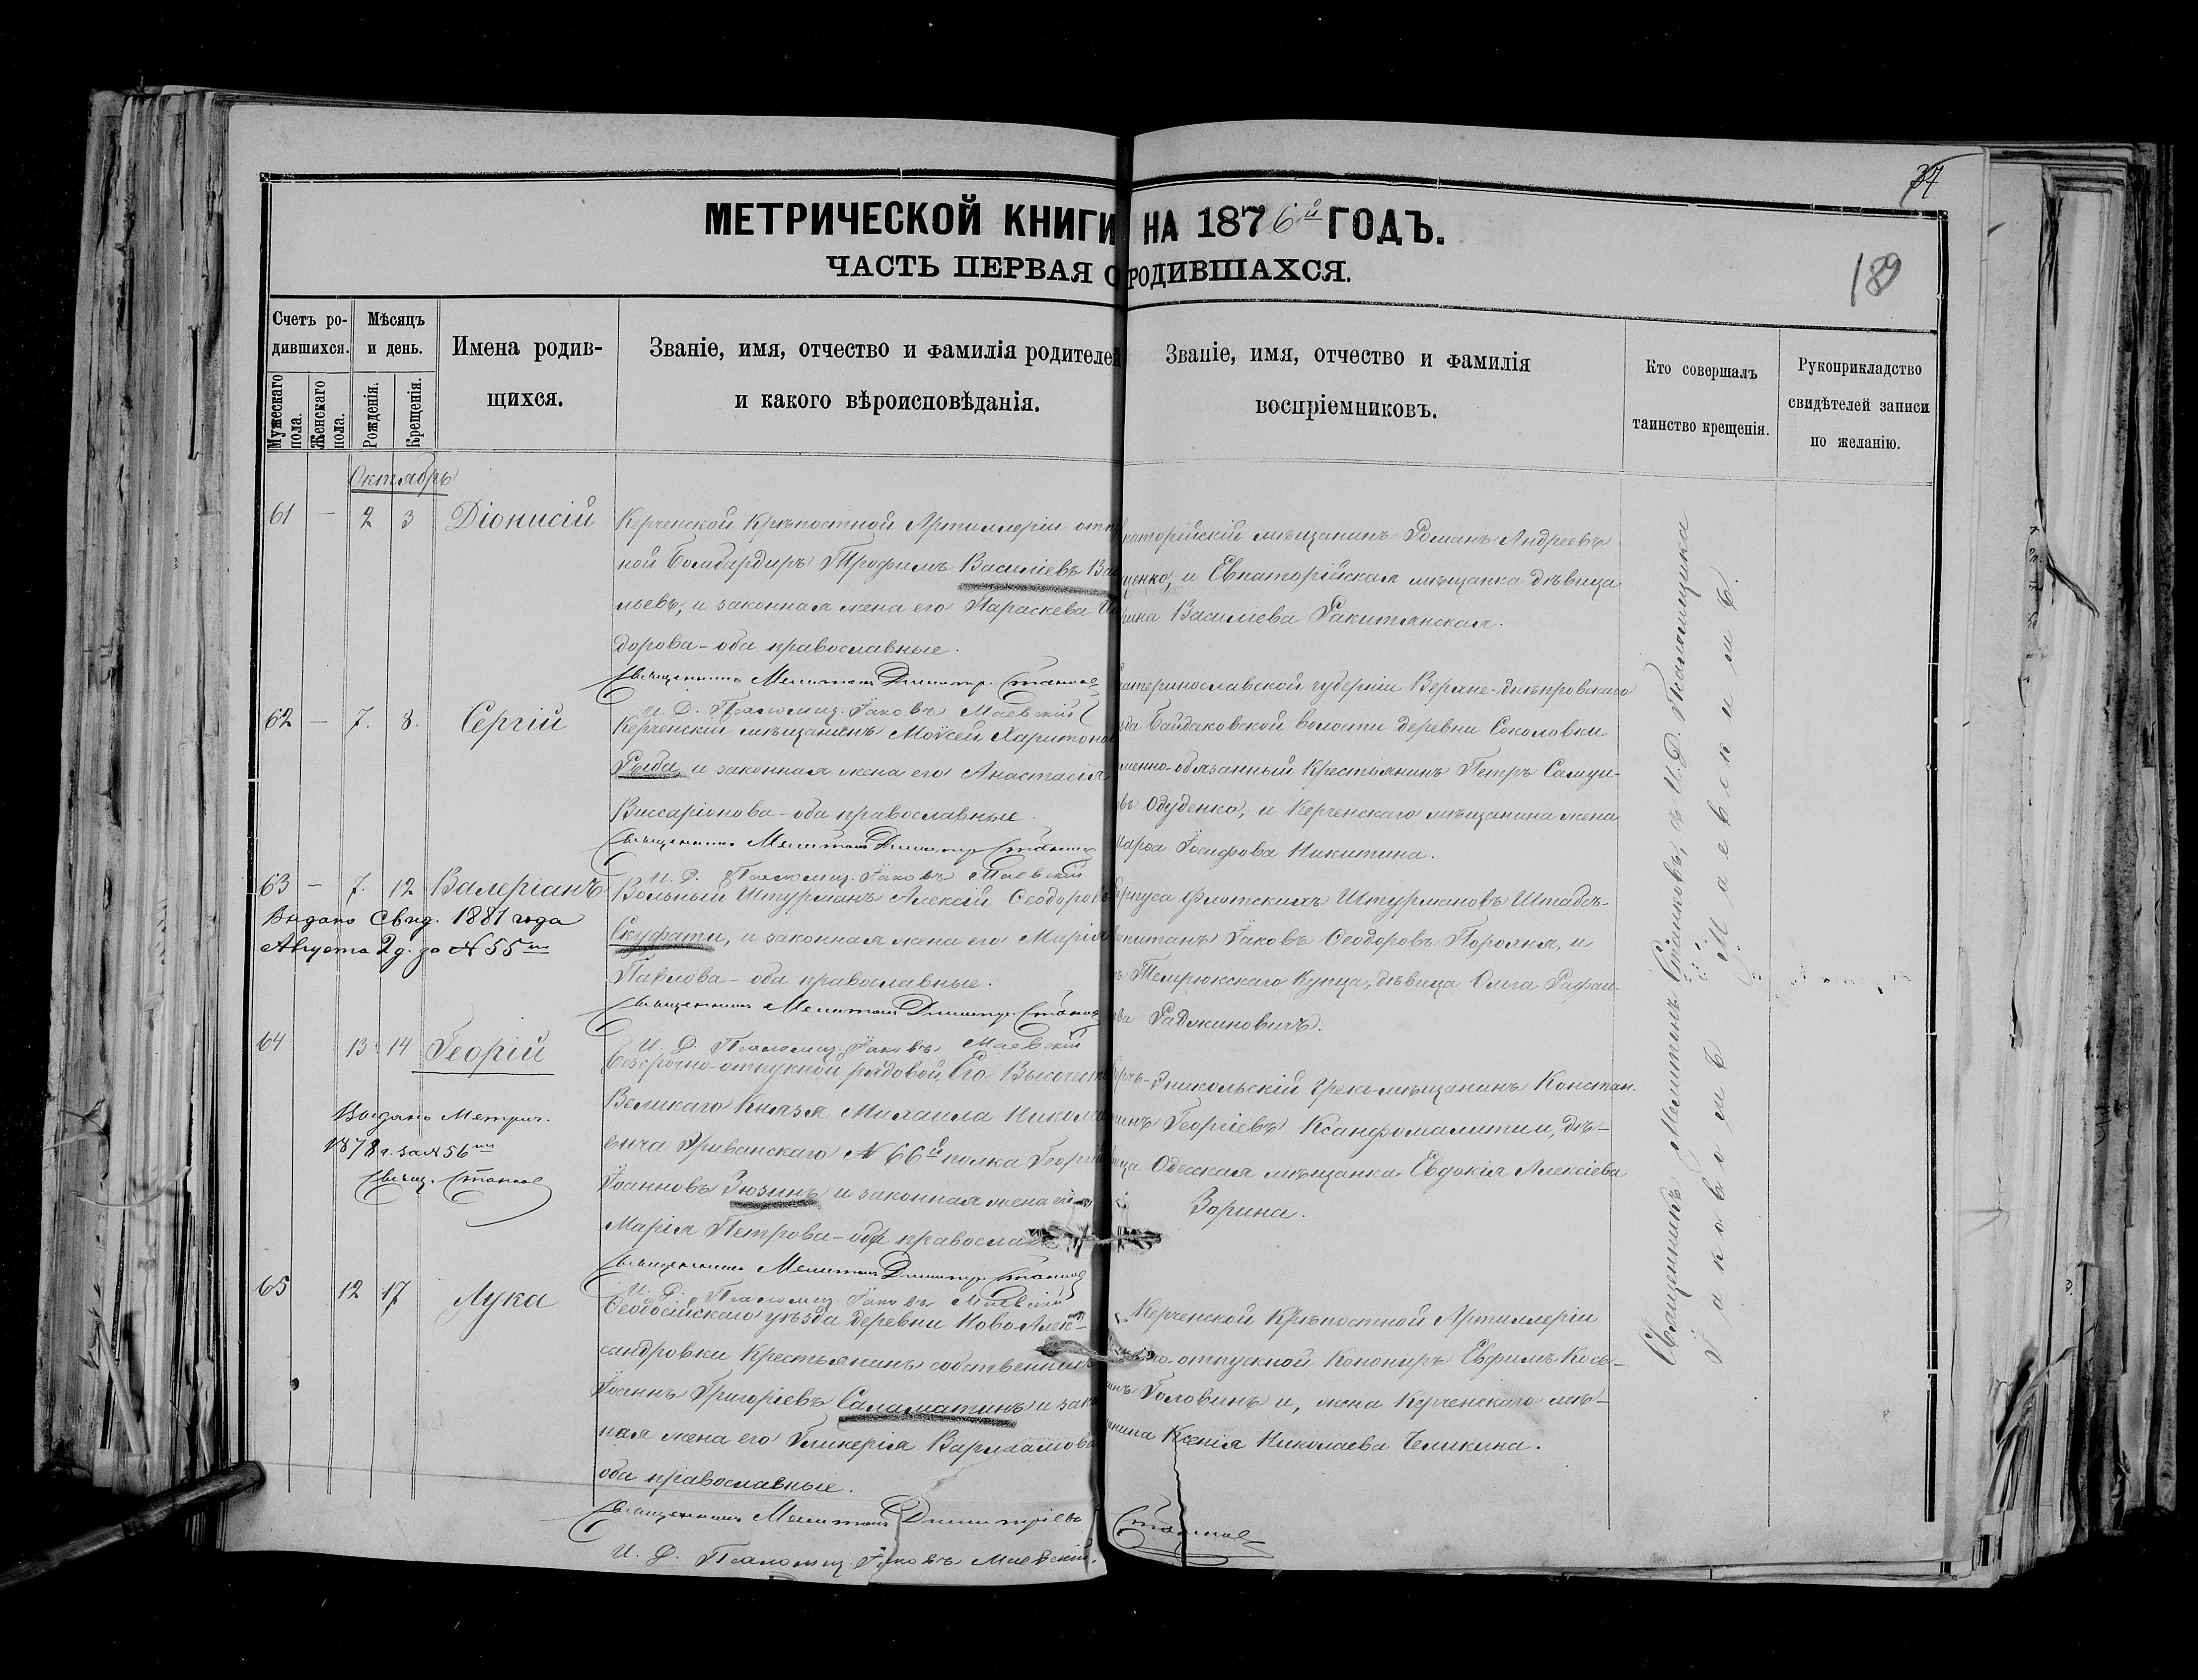 34
МЕТРИЧЕСКОЙ КНИГИ НА 1876й ГОДЪ.
ЧАСТЬ ПЕРВАЯ О РОДИВШАХСЯ.
189
Счетъ ро-
дившихся.
Мужескаго пола.
Женскаго пола.
Мѣсяцъ
и день.
Рожденія.
Крещенія.
Имена родив-
щихся.
Званіе, имя, отчество и фамилія родителей
и какого вѣроисповѣданія.
Званіе, имя, отчество и фамилія
воспріемниковъ.
Кто совершалъ
таинство крещенія.
Рукоприкладство
свидѣтелей записи
по желанію.
Октябрь
61 — 2 3 Діонисій
Керченской Крѣпостной Артиллеріи отпу
ной Бомбардиръ Трофимъ Василіевъ Ва
льевъ, и законная жена его Параскева
дорова - оба православные.
Священникъ Мелитонъ Димитр. Станков
И. Д. Псаломщ. Іаковъ Маевскій
паторійскій мѣщанинъ Романъ Андреевъ
ценко, и Евпаторійская мѣщанка дѣвица
рина Василіева Ракитянская.
62 — 7. 8. Сергій
Керченскій мѣщанинъ Моѵсей Харитонов
Рыба, и законная жена его Анастасія
Виссаріонова - оба православные.
Священникъ Мелитонъ Димитр. Станков
И. Д. Псаломщ. Іаковъ Маевскій
катеринославской губерніи Верхне-днѣпровскаго
зда Байдаковской волости деревни Соколовки
менно-обязанный Крестьянинъ Петръ Самуи-
въ Одуденко, и Керченскаго мѣщанина жена
Марѳа Іосифова Никитина.
63 — 7. 12 Валеріанъ
Выдано Свид. 1881 года
Августа 2 д. за № 55мъ
Вольный Штурманъ Алексій Ѳеодоровъ
Скуфати, и законная жена его Марія
Павлова - оба православные.
Священникъ Мелитонъ Димитр. Станков
И. Д. Псаломщ. Іаковъ Маевскій
рпуса Флотскихъ Штурмановъ Штабсъ-
капитанъ Іаковъ Ѳеодоровъ Порохня, и
Темрюкскаго Купца, дѣвица Ольга Рафаи-
ва Раджиновичъ.
64 13 14 Георгій
Выдано Метрич.
1878 г. за № 56мъ
Свящ. Станков
Безсрочно-отпукной рядовой, Его Высочест
Великаго Князя Михаила Никола
евича Эриванскаго № 66й полка Георгій
Іоанновъ Зюзинъ и законная жена его
Марія Петрова - оба правосла
Священникъ Мелитонъ Димитр. Станков
И. Д. Псаломщ. Іаковъ Маевскій
рчь-Эникольскій Греко-мѣщанинъ Констан.
тинъ Георгіевъ Ксанфомалитии, дѣ-
вица Одесская мѣщанка Евдокія Алексіева
Зорина.
65 12 17 Лука
Ѳеодосійскаго уѣзда деревни Ново Алек-
сандровки Крестьянинъ собственникъ
Іоаннъ Григоріевъ Саламатинъ и зако
ная жена его Гликерія Варлаамова
оба православные.
Священникъ Мелитонъ Димитріевъ Станков
И. Д. Псаломщ. Іаковъ Маевскій.
Керченской Крѣпостной Артиллеріи
но-отпускной Конониръ Евфимъ Козь-
Головинъ и, жена Керченскаго мѣ-
щанина Ксенія Николаева Челикина.
Священникъ Мелитонъ Станковъ, съ И. Д. Псаломщика
Іаковомъ Маевскимъ.